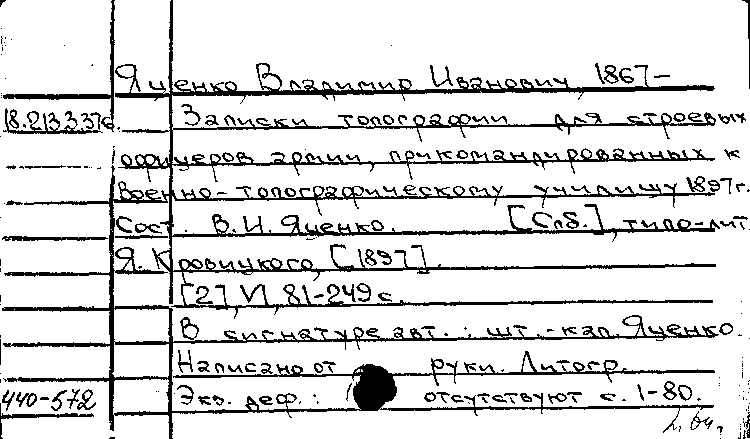 Яценко, Владимир Иванович, 1867-
18.213.3.37с. Записки топографии для строевых
офицеров армии, прикомандированных к
Военно-топографическому училищу 1897г.
Сост. В.И. Яценко. [Спб.], типо-лит.
Я. Кровицкого, [1897].
[2], VI, 81-249 с.
В сигнатуре авт.: шт.-кап. Яценко.
Написано от руки. Литогр.
440-572 Экз. деф.: отсутствуют с. 1-80.